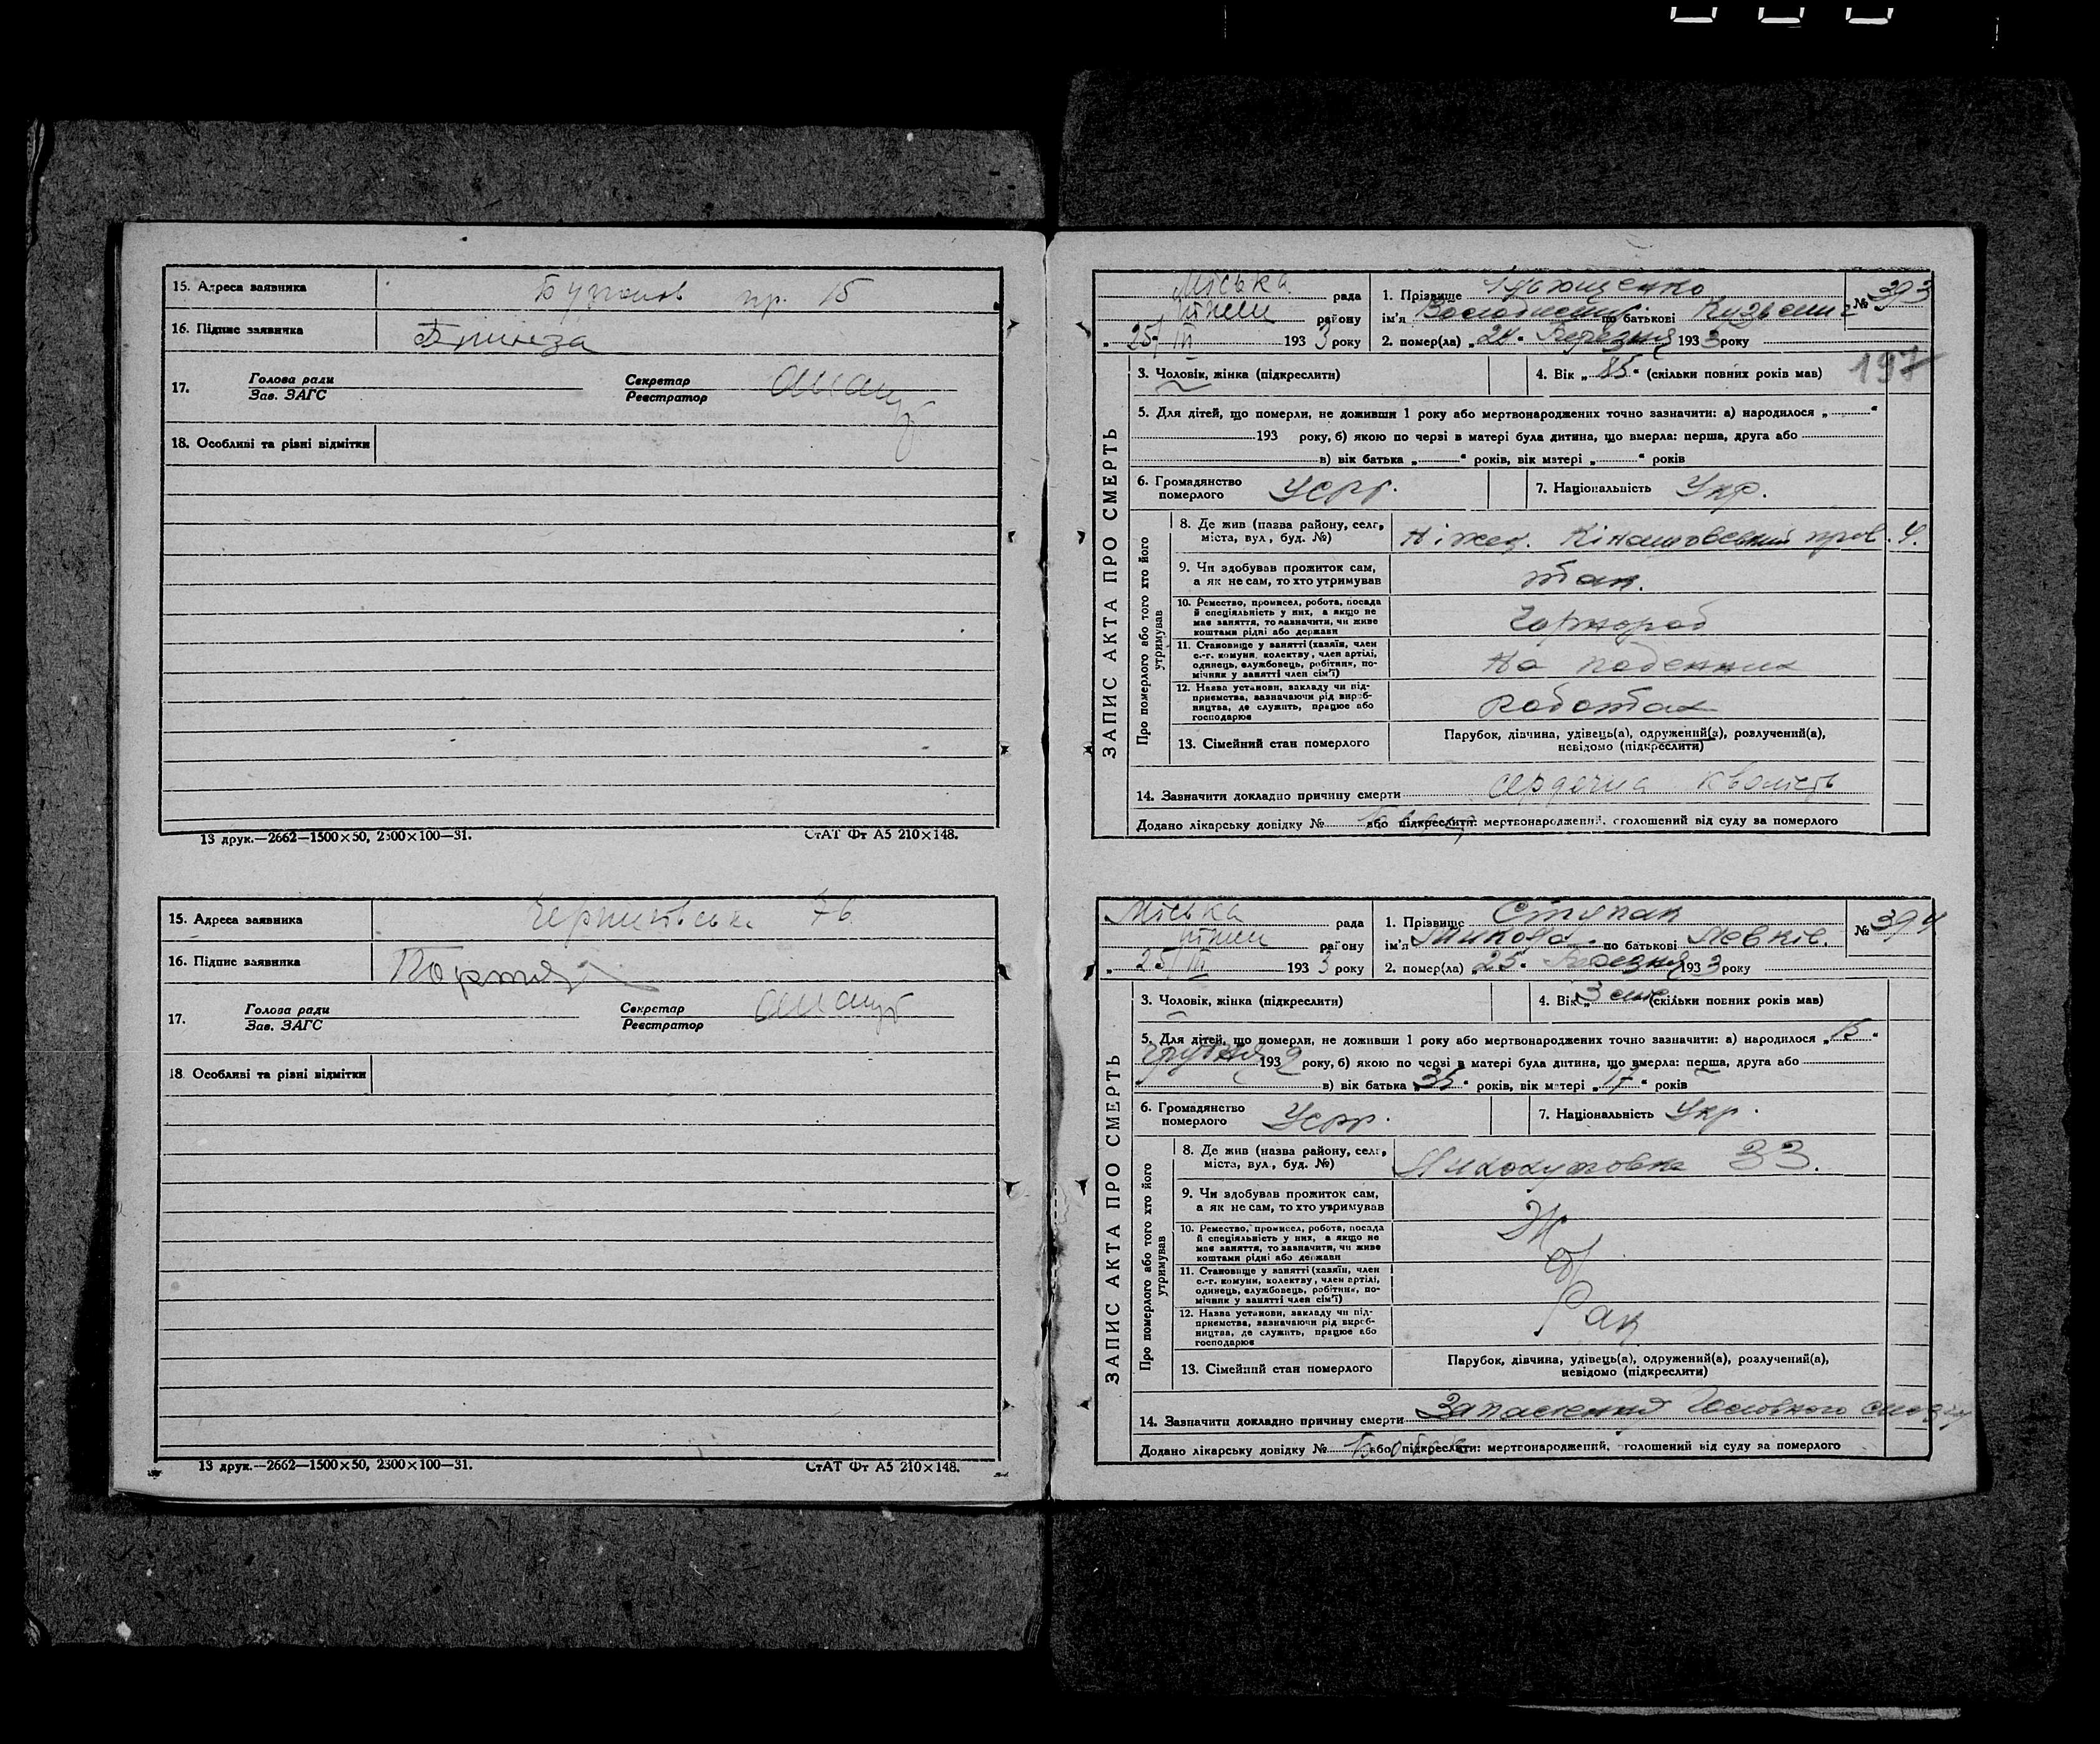 15. Адреса заявника пр. 15
16. Підпис заявника
17. Голова ради Секретар
Зав. ЗАГС Реєстратор
18. Особливі та різні відмітки
13 друк.—2662—1500×50, 2300×100—31. СтАТ Фт А5 210×148.
15. Адреса заявника 76
16. Підпис заявника
17. Голова ради Секретар
Зав. ЗАГС Реєстратор
18. Особливі та різні відмітки
13 друк.—2662—1500×50, 2300×100—31. СтАТ Фт А5 210×148.
ЗАПИС АКТА ПРО СМЕРТЬ
Міська рада
Ніжен району
„ 25/III 1933 року
1. Прізвище
№ 393
ім'я по батькові
2. помер(ла) „24“ Березня 1933 року
197
3. Чоловік, жінка (підкреслити)
4. Вік „85“ (скільки повних років мав)
5. Для дітей, що померли, не доживши 1 року або мертвонароджених точно зазначити: а) народилося „ “
193 року, б) якою по черзі в матері була дитина, що вмерла: перша, друга або
в) вік батька „ “ років, вік матері „ “ років
6. Громадянство померлого УСРР.
7. Національність Укр.
Про померлого або того хто його утримував
8. Де жив (назва району, села, міста, вул., буд. №) Ніжен. Кінашовський пров. 4.
9. Чи здобував прожиток сам, а як не сам, то хто утримував так.
10. Ремество, промисел, робота, посада й спеціяльність у них, а якщо не має заняття, то зазначити, чи живе коштами рідні або держави Чорнороб
11. Становище у занятті (хазяїн, член с.-г. комуни, колективу, член артілі, одинець, службовець, робітник, помічник у занятті член сім'ї) На поденних
12. Назва установи, закладу чи підприємства, зазначаючи рід виробництва, де служить, працює або господарює роботах
13. Сімейний стан померлого Парубок, дівчина, удівець(а), одружений(а), розлучений(а), невідомо (підкреслити)
14. Зазначити докладно причину смерти сердечна кволість
Додано лікарську довідку № або підкреслити: мертвонароджений, оголошений від суду за померлого
ЗАПИС АКТА ПРО СМЕРТЬ
Міська рада
Ніжен району
„ 25/III 1933 року
1. Прізвище Ступак
№ 394
ім'я Микола по батькові Левків.
2. помер(ла) „25“ Березня 1933 року
3. Чоловік, жінка (підкреслити)
4. Вік „3 (скільки повних років мав)
5. Для дітей, що померли, не доживши 1 року або мертвонароджених точно зазначити: а) народилося „15“
грудня 1932 року, б) якою по черзі в матері була дитина, що вмерла: перша, друга або
в) вік батька „35“ років, вік матері „17“ років
6. Громадянство померлого УСРР.
7. Національність Укр.
Про померлого або того хто його утримував
8. Де жив (назва району, села, міста, вул., буд. №) 33.
9. Чи здобував прожиток сам, а як не сам, то хто утримував
10. Ремество, промисел, робота, посада й спеціяльність у них, а якщо не має заняття, то зазначити, чи живе коштами рідні або держави
11. Становище у занятті (хазяїн, член с.-г. комуни, колективу, член артілі, одинець, службовець, робітник, помічник у занятті член сім'ї)
12. Назва установи, закладу чи підприємства, зазначаючи рід виробництва, де служить, працює або господарює
13. Сімейний стан померлого Парубок, дівчина, удівець(а), одружений(а), розлучений(а), невідомо (підкреслити)
14. Зазначити докладно причину смерти Запалення Головного
Додано лікарську довідку № або підкреслити: мертвонароджений, оголошений від суду за померлого